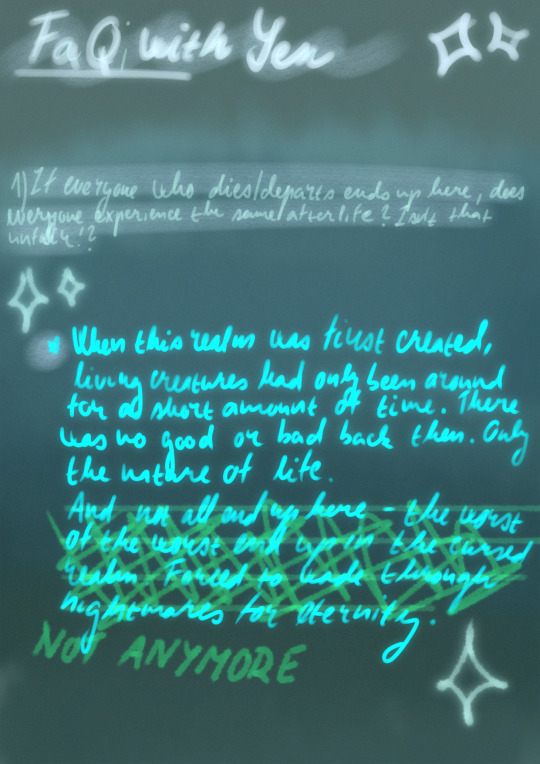 FaQ with Yen
1) If everyone who dies/departs ends up here, does
everyone experience the same afterlife? Isn't that
unfair!?
When this realm was first created,
living creatures had only been around
for a short amount of time. There
was no good or bad back then. Only
the nature of life.
And not all end up here - the worst
of the worst end up in the cursed
realm. Forced to wade through
nightmares for eternity.
NOT ANYMORE